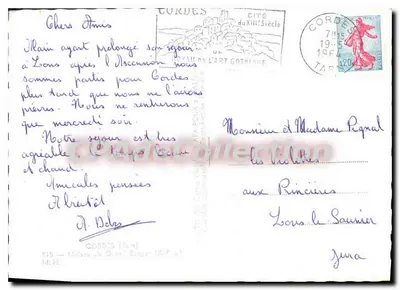 Chers Amis
Alain ayant prolongé son séjour
à Lons après l'Ascension nous
sommes partis pour Cordes
plus tard que nous ne l'avions
prévu. Nous ne rentrerons
que mercredi soir.
Notre séjour est très
agréable
et chaud.
Amicales pensées
A bientôt
CORDES
CITÉ
DU XIIIe SIÈCLE
DE L'ART GOTHIQUE
CORDES
19-5
TARN
0,20
Monsieur et Madame Pignal
les Violettes
aux Princières
Lons le Saunier
Jura
CORDES